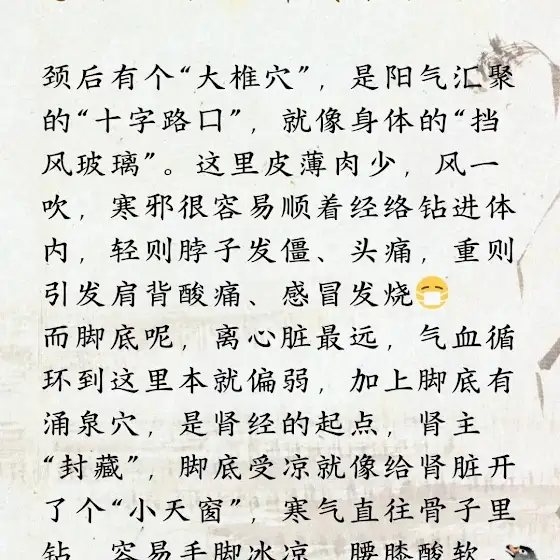 颈后有个“大椎穴”，是阳气汇聚
的“十字路口”，就像身体的“挡
风玻璃”。这里皮薄肉少，风一
吹，寒邪很容易顺着经络钻进体
内，轻则脖子发僵、头痛，重则
引发肩背酸痛、感冒发烧😷
而脚底呢，离心脏最远，气血循
环到这里本就偏弱，加上脚底有
涌泉穴，是肾经的起点，肾主
“封藏”，脚底受凉就像给肾脏开
了个“小天窗”，寒气直往骨子里
钻，容易手脚冰凉、腰膝酸软。